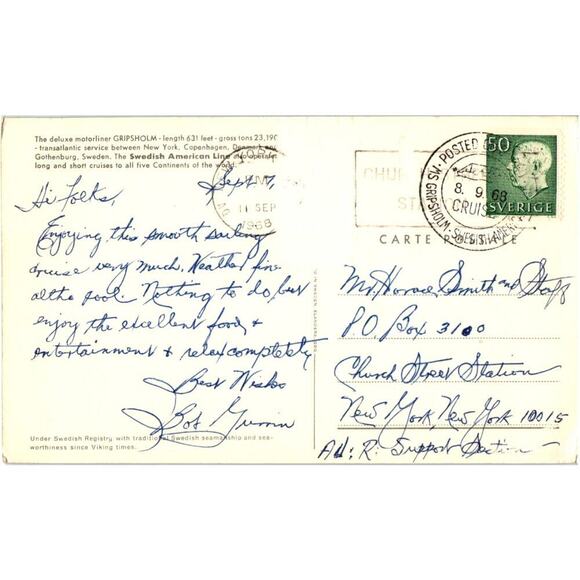 The deluxe motorliner GRIPSHOLM - length 631 feet - gross tons 23,190
- transatlantic service between New York, Copenhagen, Denmark
Gothenburg, Sweden. The Swedish American Line also operates
long and short cruises to all five Continents of the world.
Sept 7,
Hi Folks,
Enjoying this smooth sailing
cruise very much. Weather fine
at the pool. Nothing to do, but
enjoy the excellent food, +
entertainment + relax completely
Best Wishes
Bob
Under Swedish Registry, with traditional Swedish seamanship and sea-
worthiness since Viking times.
PM
11 SEP
1968
POSTED
MS GRIPSHOLM · SWEDISH AMERICAN
8. 9. 68
CRUISE
50
SVERIGE
CARTE POSTALE
Mr. Horace Smith and Staff
P.O. Box 3100
Church Street Station
New York, New York 10015
Ad: R. Support Section